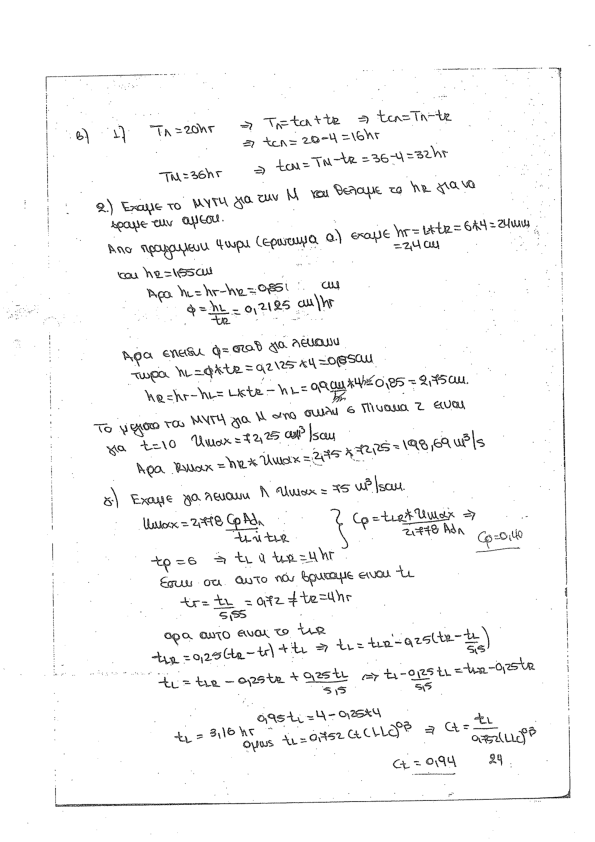 β) 1) TΛ = 20hr ⇒ TΛ = tcΛ + tR ⇒ tcΛ = TΛ - tR
⇒ tcΛ = 20-4 = 16hr
TM = 36hr ⇒ tcM = TM - tR = 36-4 = 32hr
2.) Εχουμε το ΜΥΓ4 για την Μ και θελουμε το hR για να
βρουμε την αιχμη.
Απο προηγουμενη 4ωρη (ερωτημα α.) εχουμε hr = i*tR = 6*4 = 24mm
= 2,4 cm
και hR = 1,55cm
Αρα hL = hr-hR = 0,85 cm
Φ = hL/tR = 0,2125 cm/hr
Αρα επειδη φ = σταθ για λεκανη
τωρα hL = φ*tR = 0,2125*4 = 0,85cm
hR = hr-hL = i*tR - hL = 0,9 cm/hr *4 - 0,85 = 2,75cm.
Το μεγιστο του ΜΥΓ4 για Μ απο σελιδα 6 Πινακα 2 ειναι
για t=10 Umax = 72,25 m³/s/cm
Αρα Rmax = hR * Umax = 2,75 * 72,25 = 198,69 m³/s
γ.) Εχουμε για λεκανη Λ Umax = 75 m³/s/cm.
Umax = 2,778 Cp AdΛ / tL ή tLR } Cp = tLR * Umax / 2,778 AdΛ ⇒
Cp = 0,40
tp = 6 ⇒ tL ή tLR = 4hr
Εστω οτι αυτο που βρηκαμε ειναι tL
tr = tL/5,55 = 0,72 ≠ tR = 4hr
αρα αυτο ειναι το tLR
tLR = 0,25(tR - tr) + tL ⇒ tL = tLR - 0,25(tR - tL/5,5)
tL = tLR - 0,25tR + 0,25tL/5,5 ⇒ tL - 0,25tL/5,5 = tLR - 0,25tR
0,95tL = 4 - 0,25*4
tL = 3,16 hr ομως tL = 0,752 Ct (LLc)^0,3 ⇒ Ct = tL / 0,752(LLc)^0,3
Ct = 0,94 24